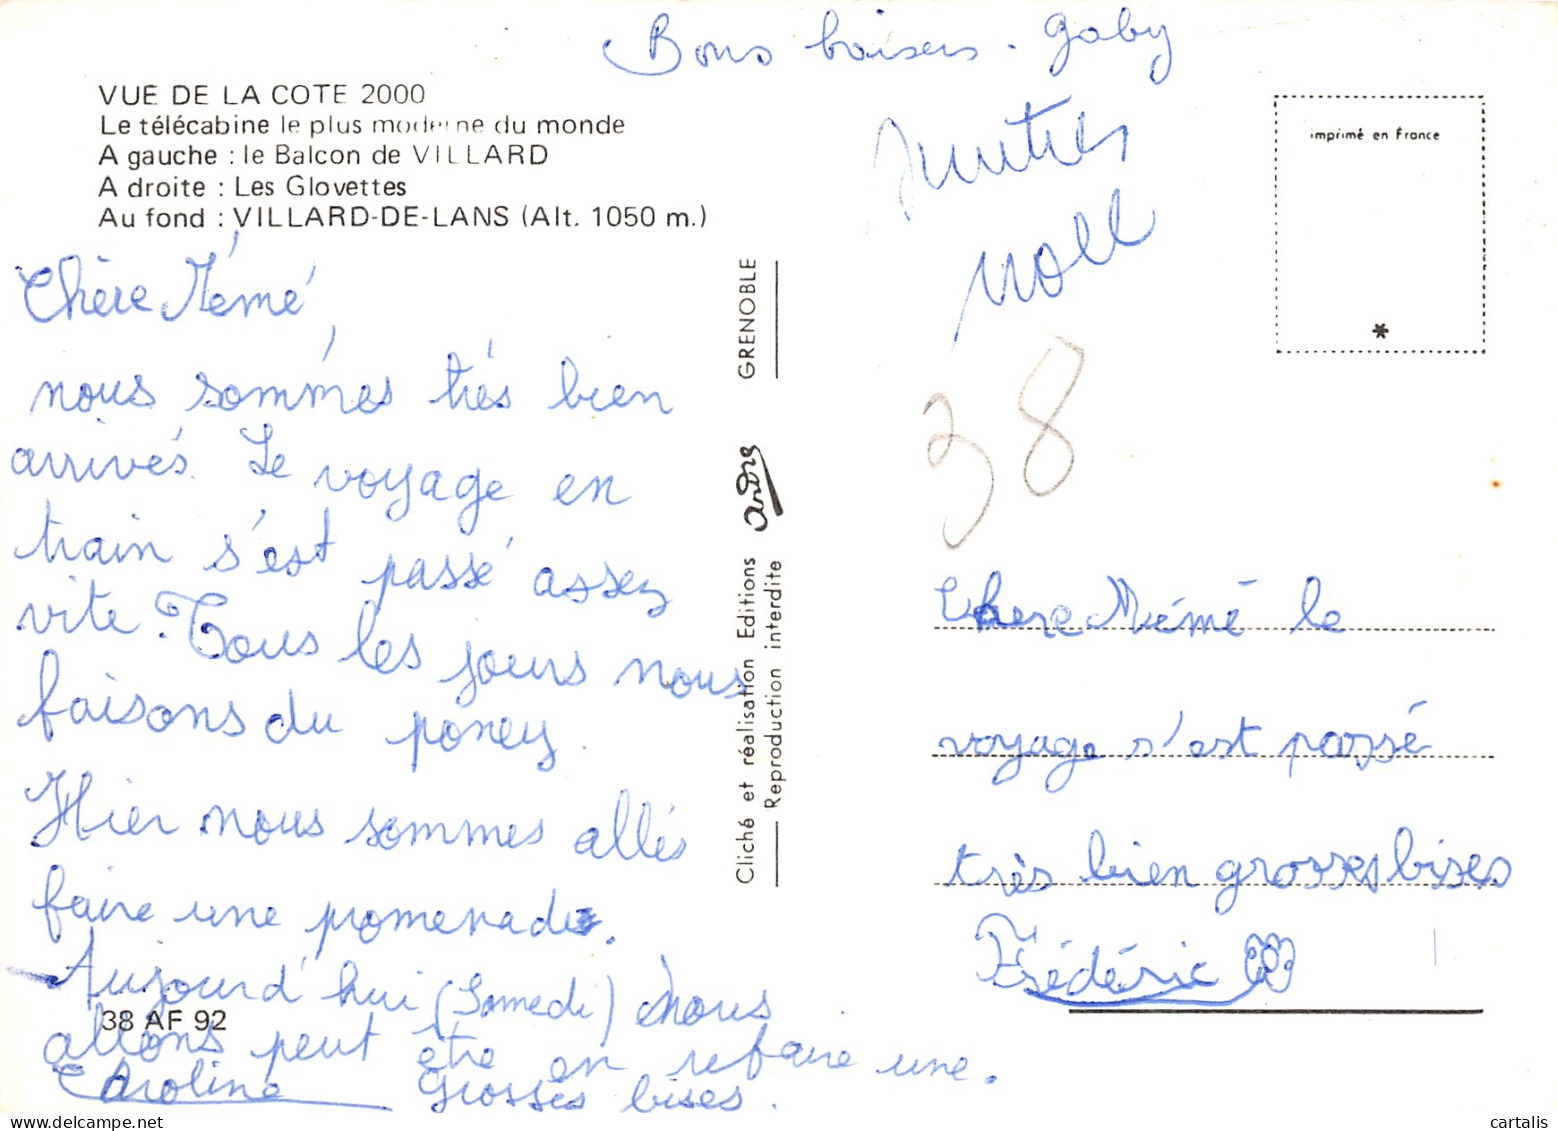 Bons baisers. Gaby
VUE DE LA COTE 2000
Le télécabine le plus moderne du monde
A gauche : le Balcon de VILLARD
A droite : Les Glovettes
Au fond : VILLARD-DE-LANS (Alt. 1050 m.)
imprimé en France
*
38
Chère Mémé,
nous sommes très bien
arrivés. Le voyage en
train s'est passé assez
vite. Tous les jours nous
faisons du poney.
Hier nous sommes allés
faire une promenade.
Aujourd'hui (Samedi) nous
allons peut être en refaire une.
Caroline Grosses bises.
38 AF 92
GRENOBLE
andré
Cliché et réalisation Editions
Reproduction interdite
Chere Mémé le
voyage s'est passé
très bien grosses bises
Frédéric
cartalis
www.delcampe.net